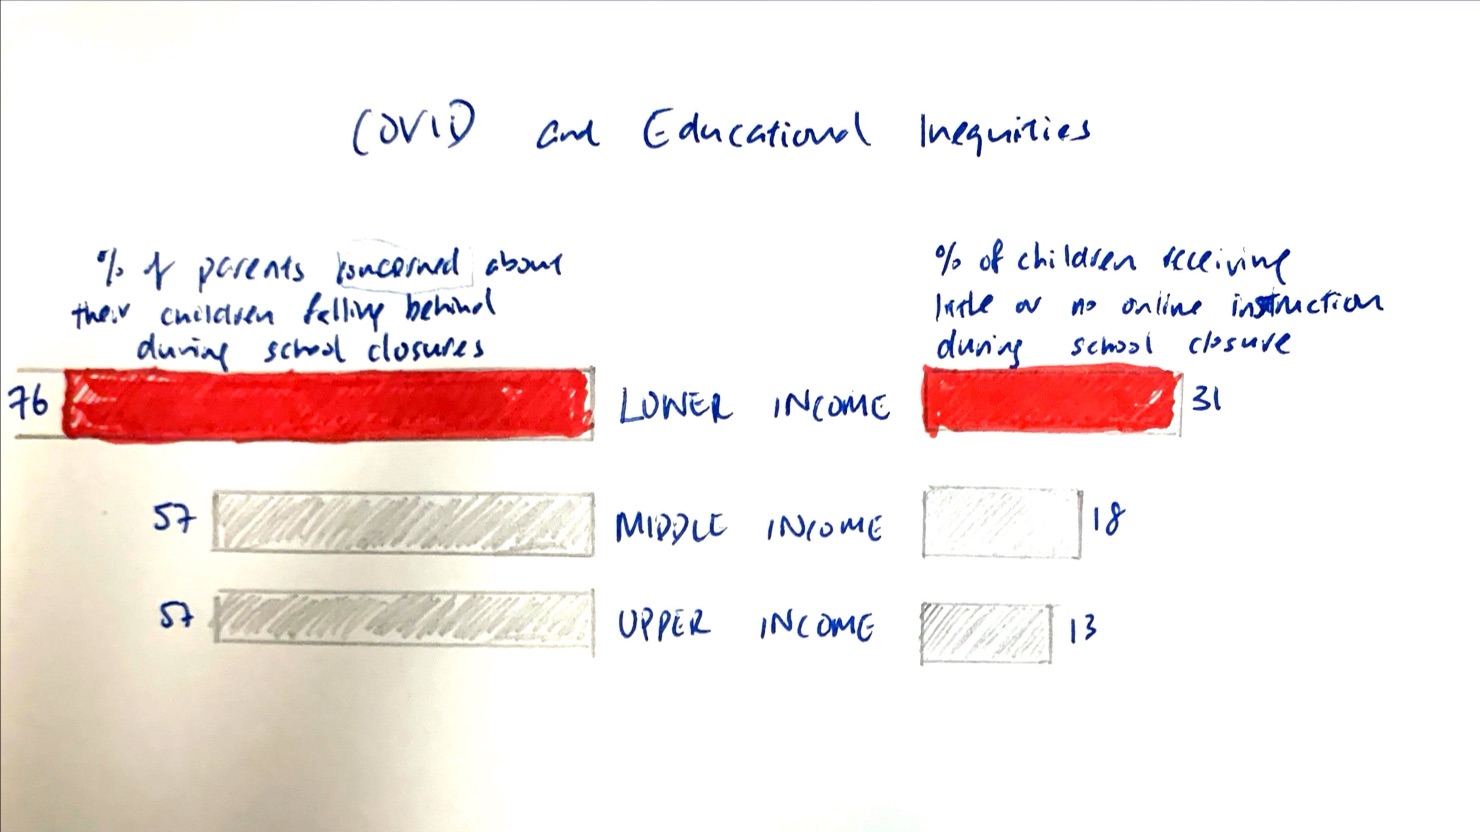 COVID and Educational Inequities
% of parents concerned about
their children falling behind
during school closures
% of children receiving
little or no online instruction
during school closure
76 LOWER INCOME 31
57 MIDDLE INCOME 18
57 UPPER INCOME 13